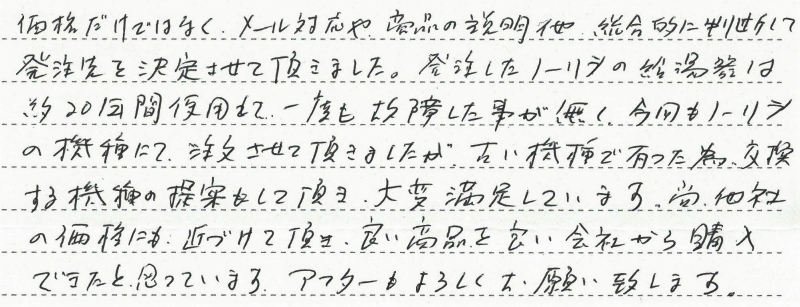 価格だけではなく、メール対応や、商品の説明他、総合的に判断して
発注先を決定させて頂きました。発注したノーリツの給湯器は
約20年間使用して、一度も故障した事が無く、今回もノーリツ
の機種にて、注文させて頂きましたが、古い機種で有った為、交換
する機種の提案もして頂き、大変満足しています。尚、他社
の価格にも、近づけて頂き、良い商品を良い会社から購入
できたと思っています。アフターもよろしくお願い致します。